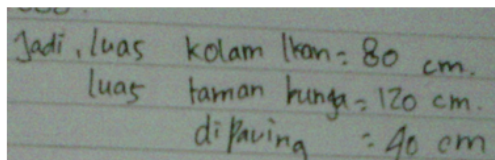 Jadi, luas kolam Ikan = 80 cm.
luas taman bunga = 120 cm.
dipaving = 40 cm